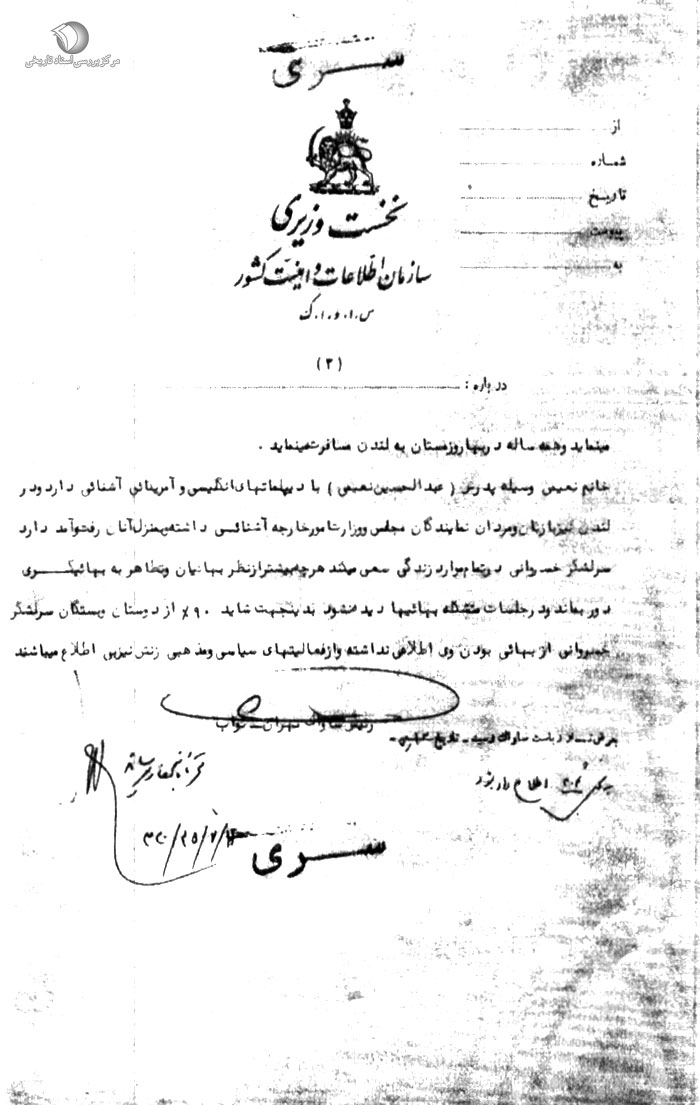 مرکز بررسی اسناد تاریخی
سری
از
شماره
تاریخ
پیوست
به
نخست وزیری
سازمان اطلاعات و امنیت کشور
س.ا.و.ا.ک
(۲)
درباره :
مینماید وهمه ساله دربهاروزمستان به لندن مسافرت مینماید .
خانم نعیمی وسیله پدرش ( عبدالحسین نعیمی ) با دیپلماتهای انگلیسی و آمریکائی آشنائی دارد ودر
لندن نیز با زنان ومردان نمایندگان مجلس ووزارت امورخارجه آشنائی داشته وبمنزل آنان رفت وآمد دارد
سرلشگر خسروانی درتمام موارد زندگی سعی میکند هرچه بیشتر ازنظر بهائیان وتظاهر به بهائیگری
دور بماند ودر جلسات متشکله بهائیها دیده نشود بدینجهت شاید ۹۰٪ از دوستان وبستگان سرلشگر
خسروانی از بهائی بودن وی اطلاعی نداشته وازفعالیتهای سیاسی ومذهبی زنش نیزبی اطلاع میباشند
رئیس ساواک تهران ـ نواب
اطلاع دارد بود
سری